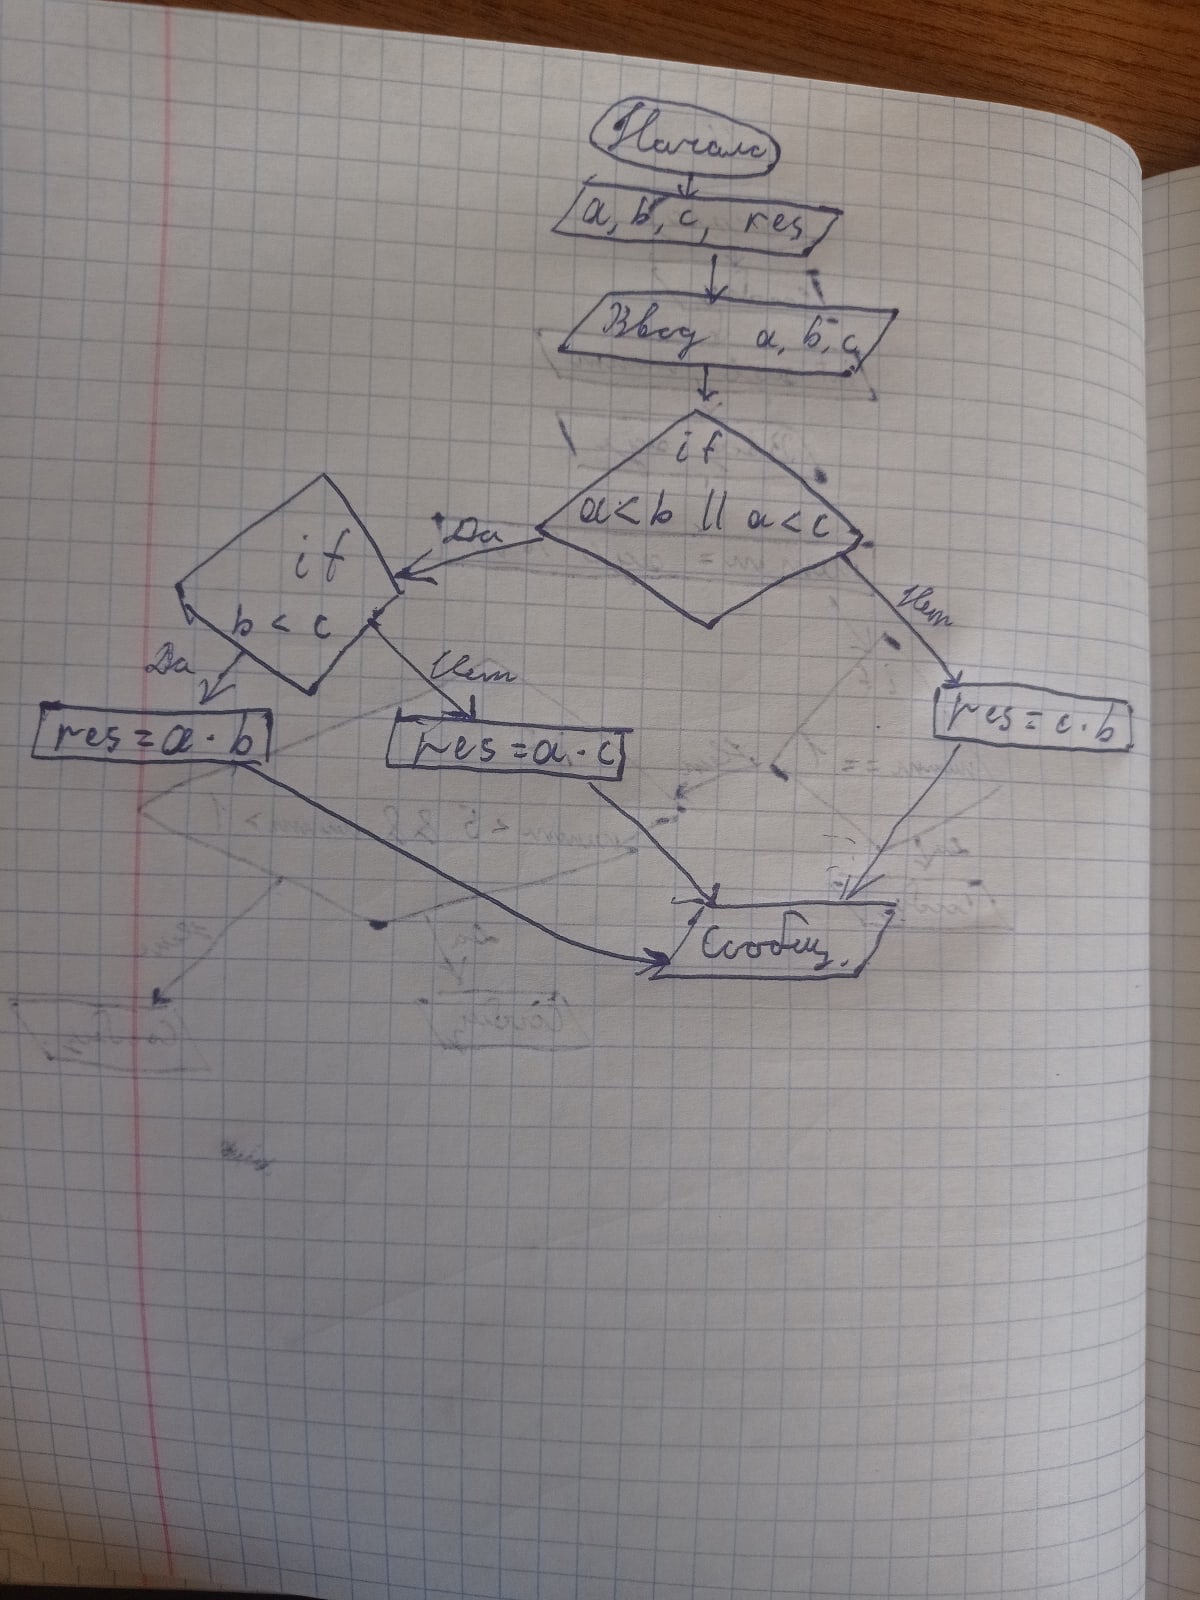 Начало
a, b, c, res
Ввод a, b, c,
if
a < b || a < c
Да
Нет
if
b < c
Да
Нет
res = a · b
res = a · c
res = c · b
Сообщ.